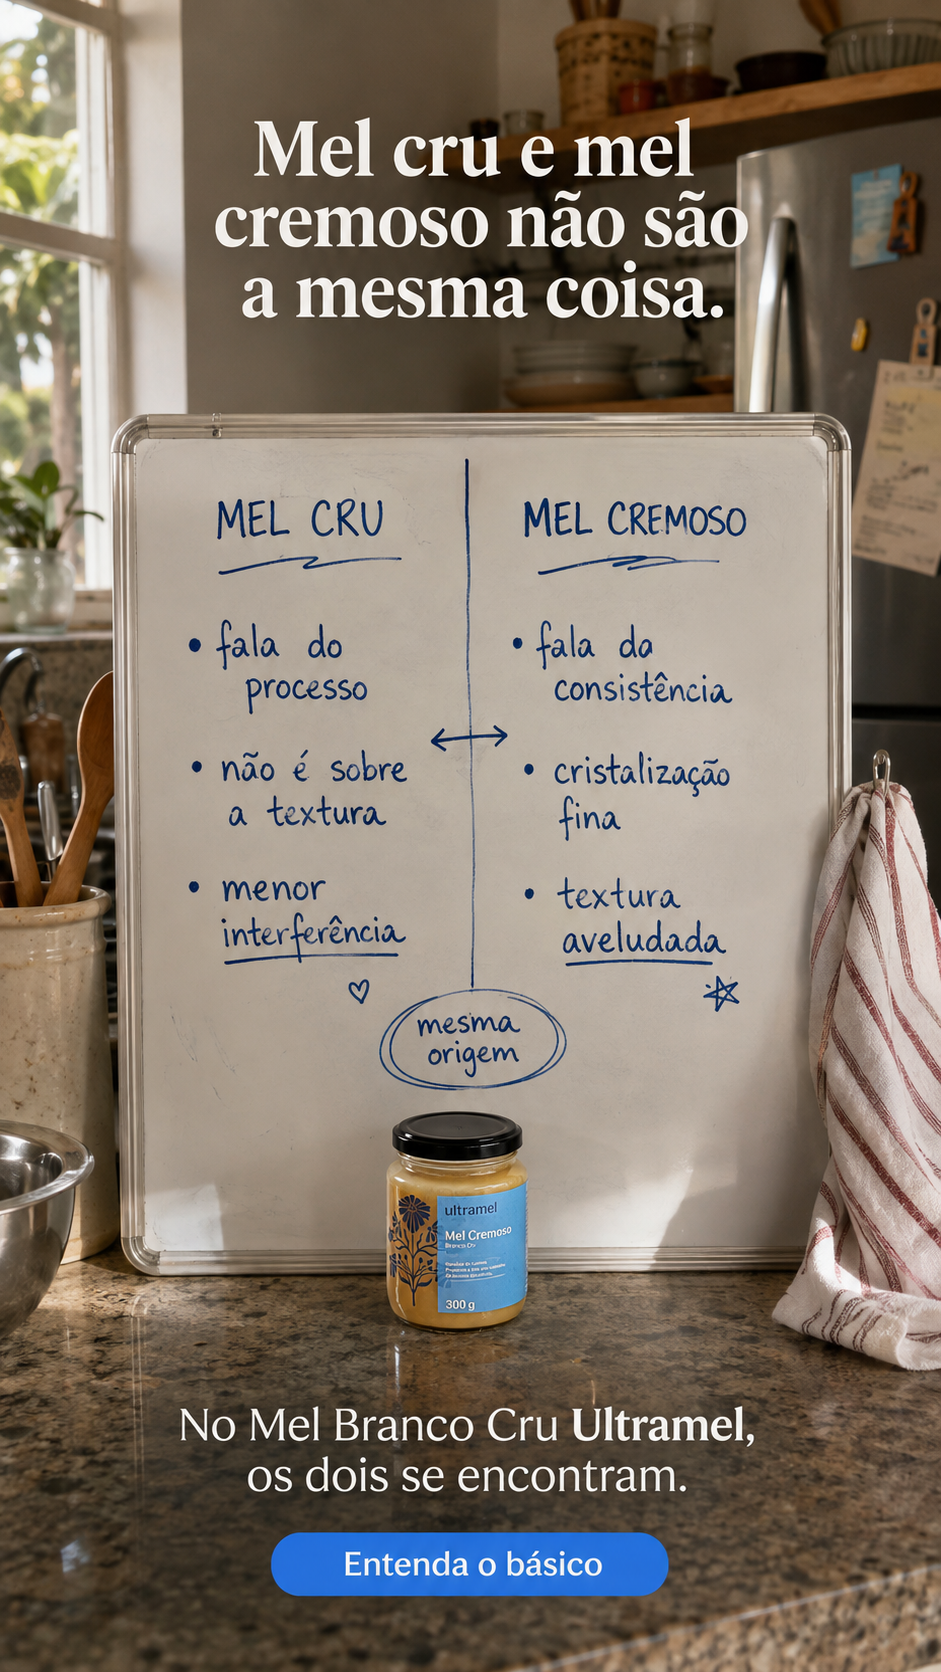 Mel cru e mel
cremoso não são
a mesma coisa.
MEL CRU
• fala do
processo
• não é sobre
a textura
• menor
interferência
MEL CREMOSO
• fala da
consistência
• cristalização
fina
• textura
aveludada
mesma
origem
ultramel
Mel Cremoso
Branco Cru
300 g
No Mel Branco Cru Ultramel,
os dois se encontram.
Entenda o básico